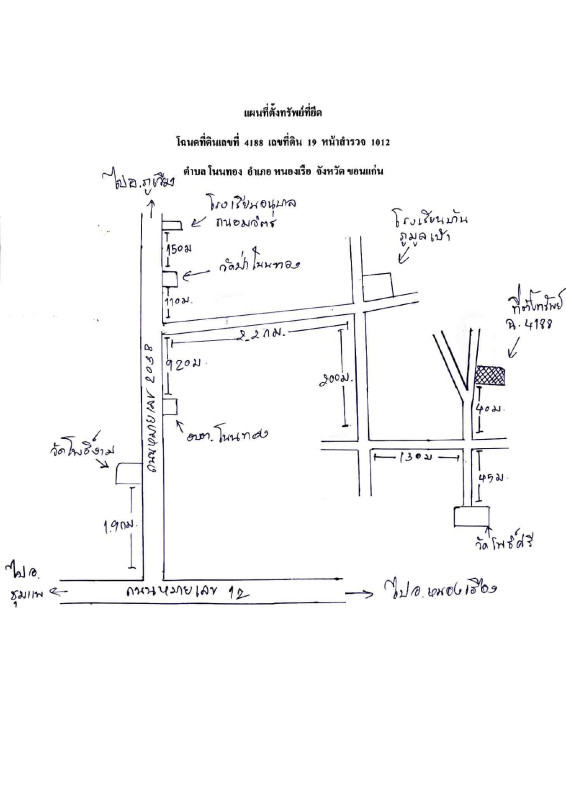 แผนที่ตั้งทรัพย์ที่ยึด
โฉนดที่ดินเลขที่ 4188 เลขที่ดิน 19 หน้าสำรวจ 1012
ตำบล โนนทอง อำเภอ หนองเรือ จังหวัด ขอนแก่น
ไปอ.ภูเวียง
โรงเรียนอนุบาล
ถนอมจิตร
150ม
วัดป่าโนนทอง
110ม.
โรงเรียนบ้าน
ภูมูลเบ้า
ที่ตั้งทรัพย์
ฉ. 4188
2.2กม.
920ม.
ถนนหมายเลข 2038
200ม.
40ม.
อบต.โนนทอง
วัดโพธิ์งาม
130ม
45ม.
1.9กม.
วัดโพธิ์ศรี
ไปอ.
ชุมแพ
ถนนหมายเลข 12
ไปอ.หนองเรือ